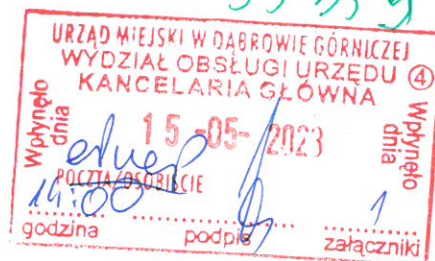 URZĄD MIEJSKI W DĄBROWIE GÓRNICZEJ
WYDZIAŁ OBSŁUGI URZĘDU ④
KANCELARIA GŁÓWNA
Wpłynęło dnia
15 -05- 2023
Wpłynęło dnia
POCZTA/OSOBIŚCIE
14:00
1
godzina podpis załączniki